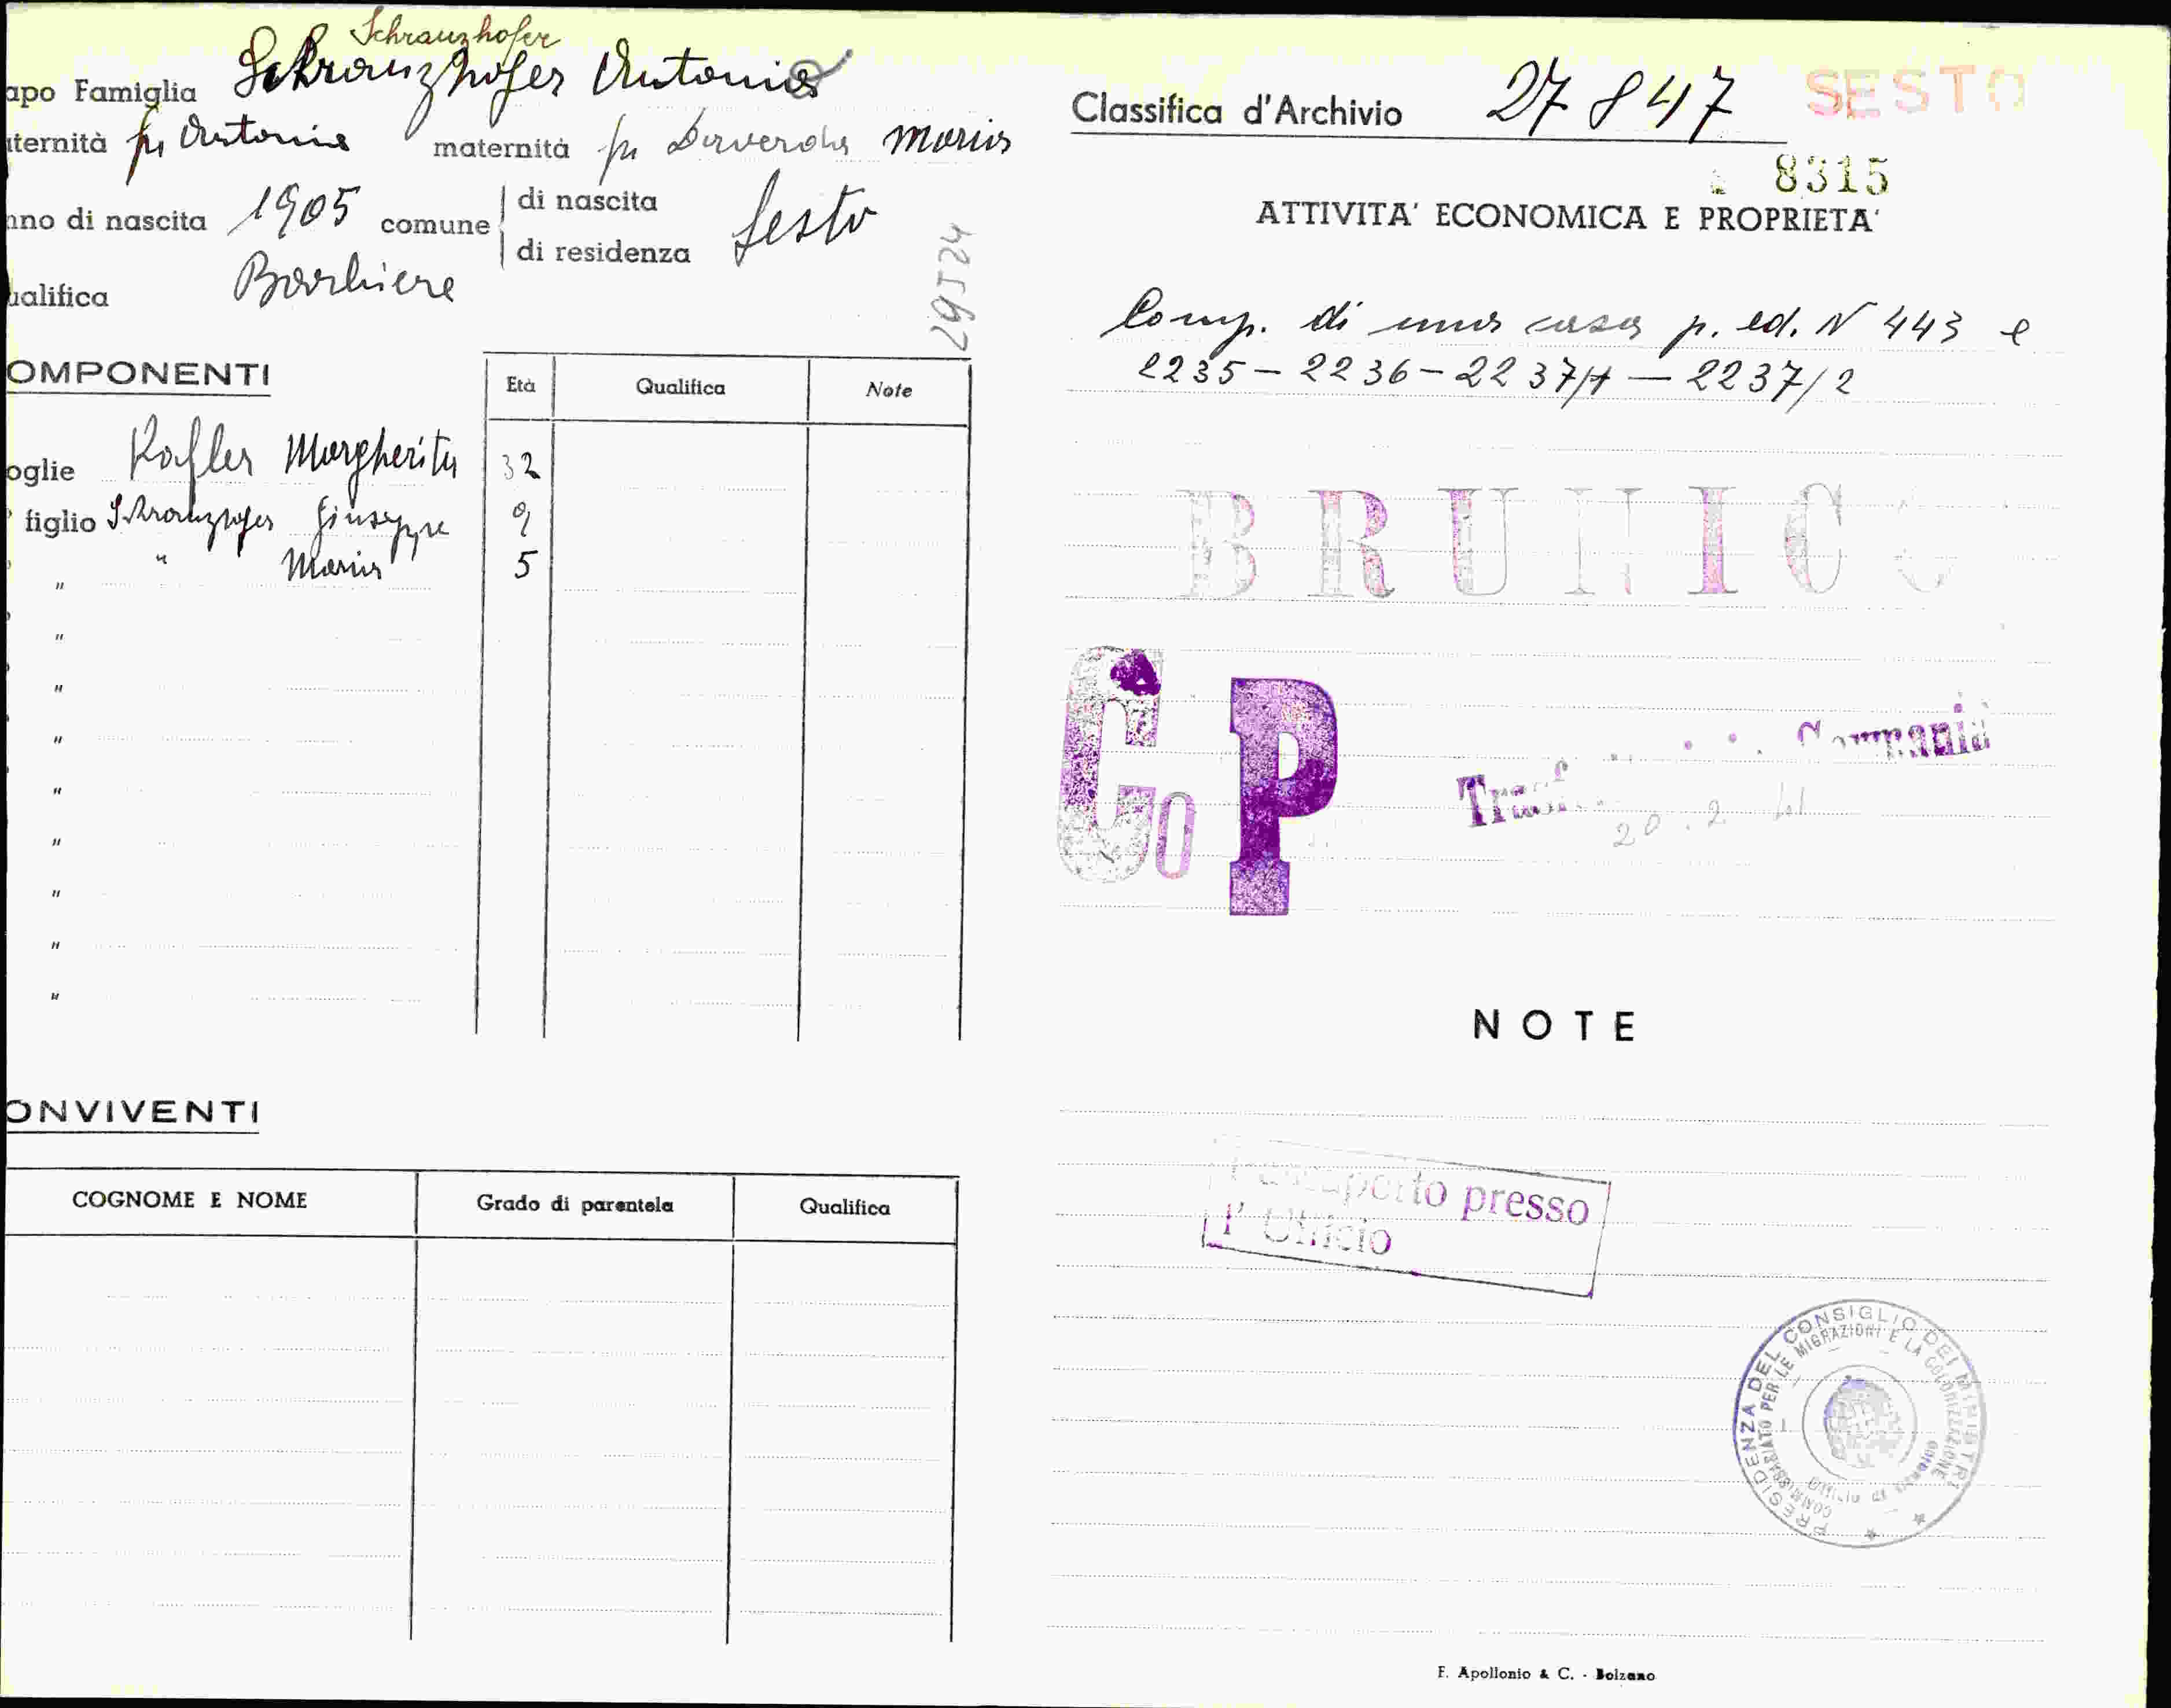 Schranzhofer
apo Famiglia Schranzhofer Antonio
aternità fu Antonio maternità fu Maria
nno di nascita 1905 comune di nascita
di residenza Sesto
ualifica Barbiere
29524
OMPONENTI
Età Qualifica Note
oglie Kofler Margherita 32
figlio Schranzhofer Giuseppe 9
" " Maria 5
"
"
"
"
"
"
"
"
ONVIVENTI
COGNOME E NOME Grado di parentela Qualifica
Classifica d'Archivio 27847 SESTO
8315
ATTIVITA' ECONOMICA E PROPRIETA'
Comp. di una casa p. ed. N 443 e
2235 - 2236 - 2237/1 - 2237/2
BRUNICO
Co P
Trasf. Germania
20.2.41
NOTE
Passaporto presso
l'Ufficio
PRESIDENZA DEL CONSIGLIO DEI MINISTRI
COMMISSARIATO PER LE MIGRAZIONI E LA COLONIZZAZIONE
F. Apollonio & C. - Bolzano